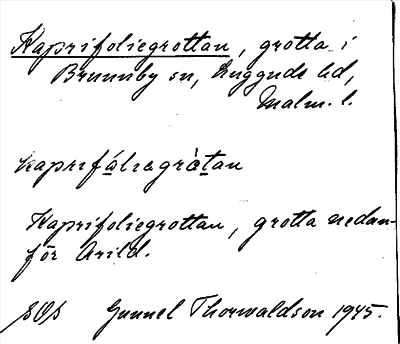 Kaprifoliegrottan, grotta i
Brunnby sn, Luggude hd,
Malm. l.
kaprifáliəgrὰtan
Kaprifoliegrottan, grotta nedan-
för Arild.
Gunnel Thorwaldson 1945.